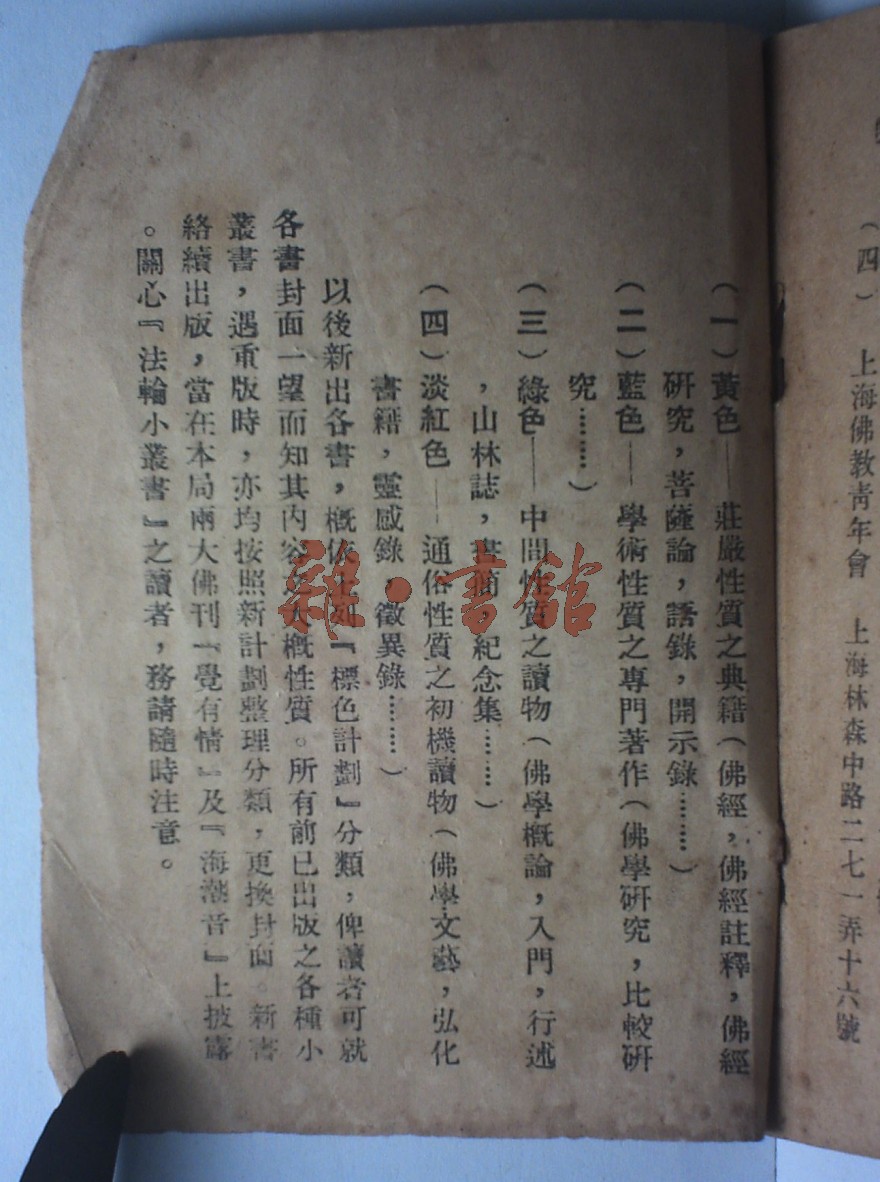 (四) 上海佛教青年會 上海林森中路二七一弄十六號
(一)黃色──莊嚴性質之典籍(佛經,佛經註釋,佛經
研究,菩薩論,語錄,開示錄………)
(二)藍色──學術性質之專門著作(佛學研究,比較研
究………)
(三)綠色──中間性質之讀物(佛學概論,入門,行述
,山林誌,書簡,紀念集………)
(四)淡紅色──通俗性質之初機讀物(佛學文藝,弘化
書籍,靈感錄,徵異錄………)
以後新出各書,概依上列『標色計劃』分類,俾讀者可就
各書封面一望而知其內容之大概性質。所有前已出版之各種小
叢書,遇重版時,亦均按照新計劃整理分類,更換封面。新書
絡續出版,當在本局兩大佛刊『覺有情』及『海潮音』上披露
。關心『法輪小叢書』之讀者,務請隨時注意。
雜·書館